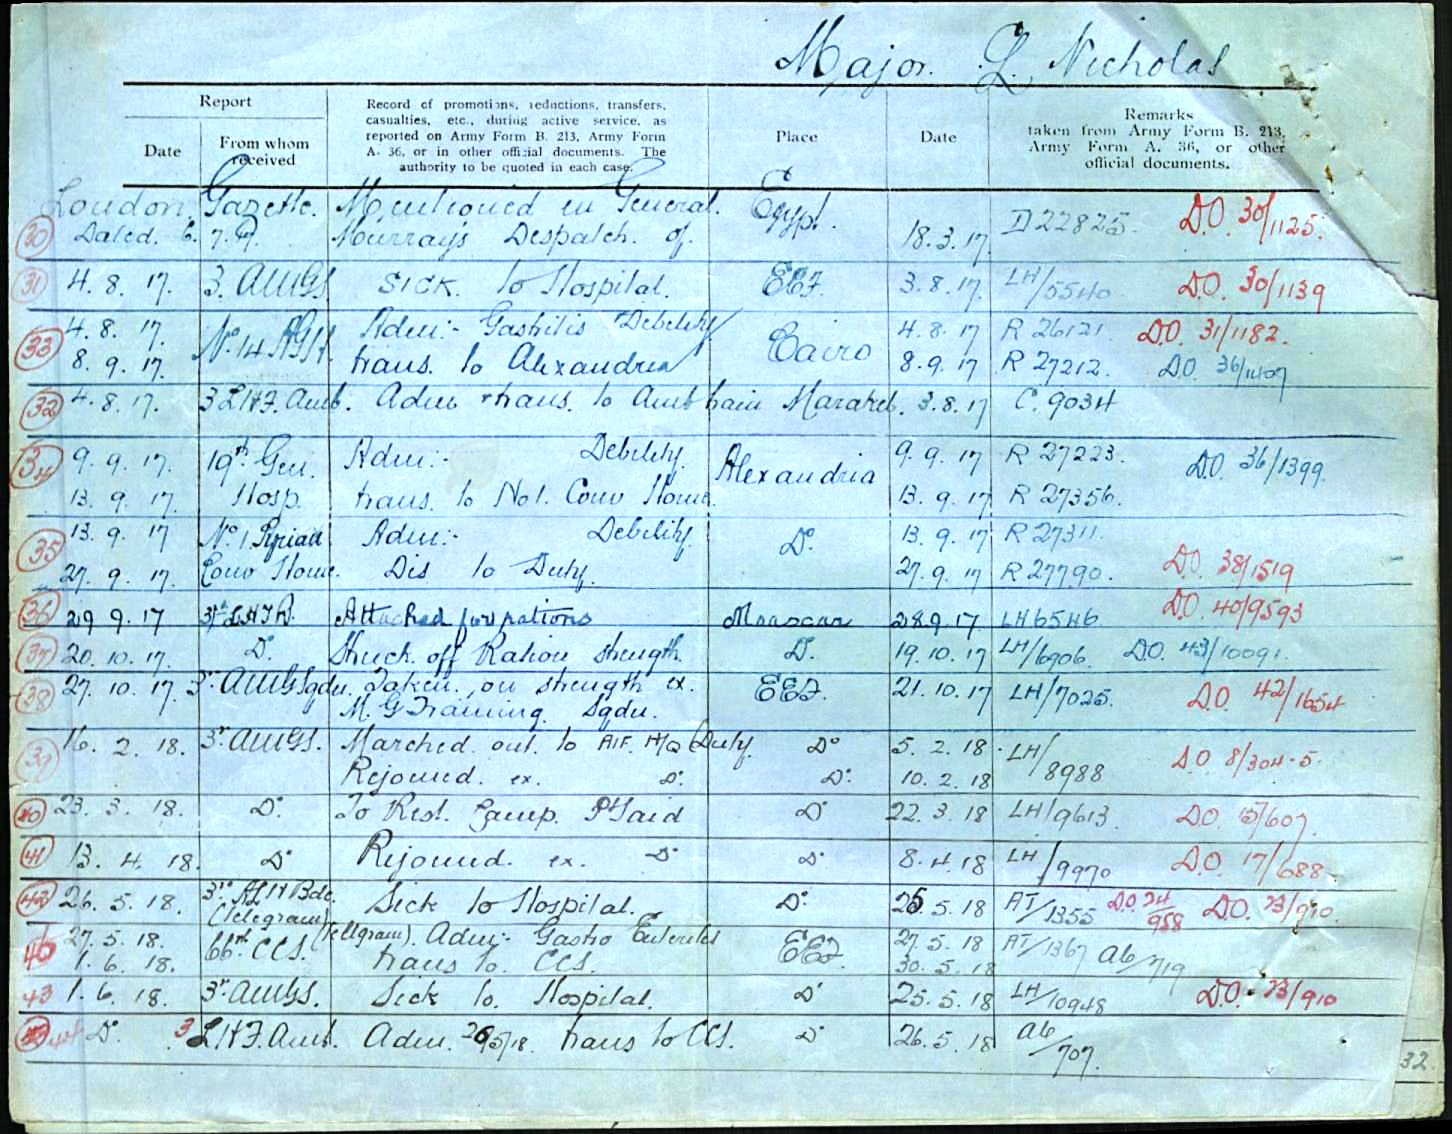 Major. L. Nicholas
Report
Date
From whom received
Record of promotions, reductions, transfers, casualties, etc., during active service, as reported on Army Form B. 213, Army Form A. 36, or in other official documents. The authority to be quoted in each case.
Place
Date
Remarks
taken from Army Form B. 213, Army Form A. 36, or other official documents.
London Gazette. Mentioned in General. Egypt. D22825. D.O. 30/1125.
30 Dated. 6. 7. 17. Murray's Despatch. of 18. 3. 17
31 4. 8. 17. 3. AMGS. SICK. to Hospital. EEF. 3. 8. 17. LH/5540 D.O. 30/1139
33 4. 8. 17. No. 14 AGH. Adm:- Gastritis Debility Cairo 4. 8. 17 R 26121 D.O. 31/1182.
8. 9. 17. trans. to Alexandria 8. 9. 17 R 27212. D.O. 36/1407
32 4. 8. 17. 3 LHF. Amb. Adm & trans. to Amb train 3. 8. 17 C. 9034
34 9. 9. 17. 19th Gen. Adm:- Debility. Alexandria 9. 9. 17 R 27223. D.O. 36/1399.
13. 9. 17. Hosp. trans. to No 1. Conv Home. 13. 9. 17 R 27356.
35 13. 9. 17 No. 1 Adm:- Debility. Do. 13. 9. 17 R 27311.
27. 9. 17. Conv Home. Dis to Duty. 27. 9. 17 R 27790. D.O. 38/1519
36 29 9. 17 LHTR. Attached for rations Moascar 28 9. 17. LH 6546 D.O. 40/9593
37 20. 10. 17. Do. Struck. off Ration strength. Do. 19. 10. 17 LH/6906. D.O. 43/10091.
38 27. 10. 17. 3rd AMG Sqdn. Taken. on strength ex. EEF. 21. 10. 17 LH/7025. D.O. 42/1654
M. G Training Sqdn.
39 16. 2. 18. 3rd AMGS. Marched out. to AIF. H/Q (Duty. Do 5. 2. 18. LH/8988 D.O 8/304-5.
Rejoined. ex. Do. Do. 10. 2. 18
40 23. 3. 18. Do. To Rest. Camp. Pt Said Do 22. 3. 18 LH/9613. D.O. 15/607.
41 13. 4. 18. Do Rejoined. ex. Do Do 8. 4. 18 LH/9970 D.O. 17/688.
42 26. 5. 18. 3rd ALH Bde. Sick to Hospital. Do. 25. 5. 18 AT/1355 D.O. 24/988 D.O. 23/910.
(Telegram)
27. 5. 18. 66th CCS. (Tellgram). Adm:- Gastro Enteritis EEF. 27. 5. 18 AT/1367 A6/719
1. 6. 18. trans to. CCS. 30. 5. 18
43 1. 6. 18. 3rd AMGS. Sick to. Hospital. Do 25. 5. 18 LH/10948 D.O. 23/910
44 Do. 3 LHF. Amb. Adm. 26/5/18. trans to CCS. Do 26. 5. 18 A6/707.
32.